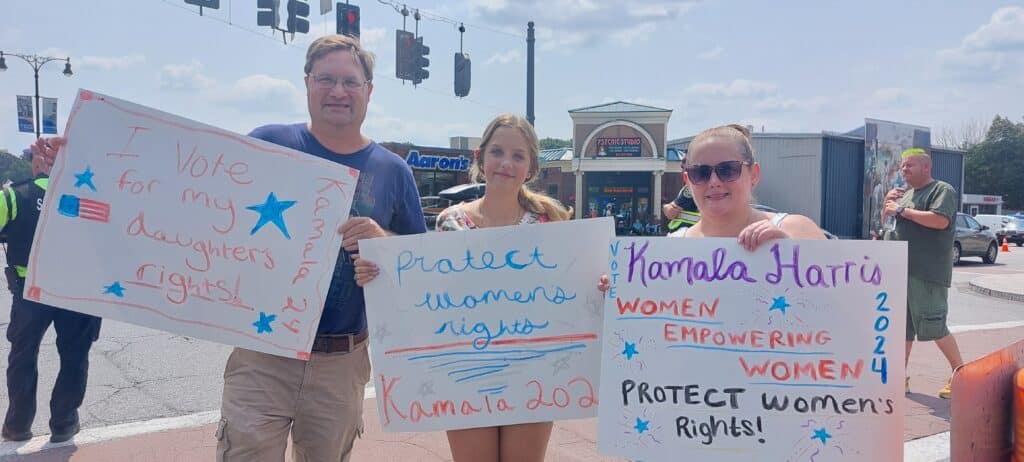 I Vote
for my
daughters
rights!
Kamala 24
Protect
women's
rights
Kamala 202
VOTE
Kamala Harris
2024
WOMEN
EMPOWERING
WOMEN
PROTECT Women's
Rights!
Aaron's
PSYCHIC STUDIO